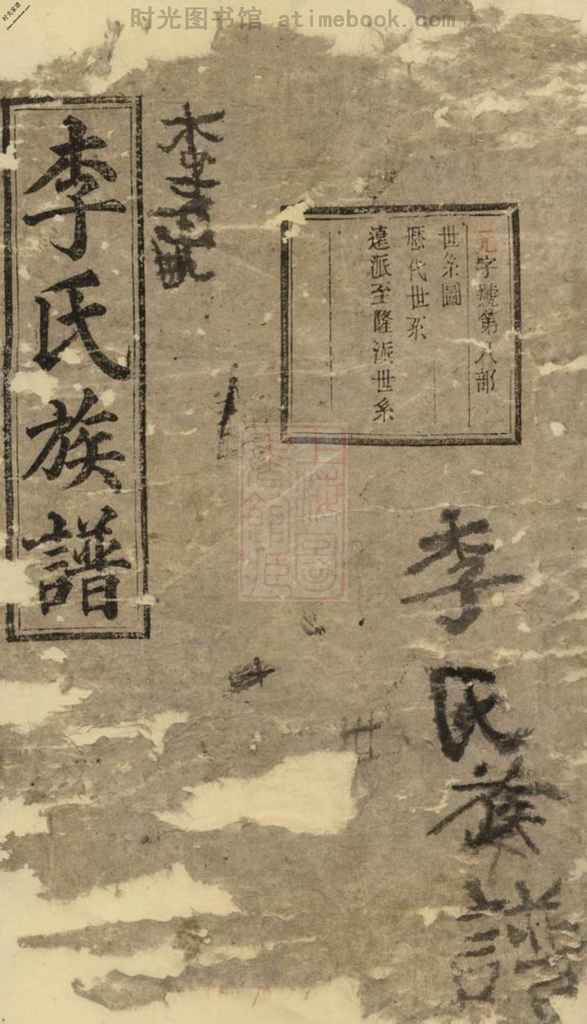 时光图书馆 atimebook.com
李氏族譜
元字號第八部
世系圖
歷代世系
遠派至隆派世系
李氏族譜